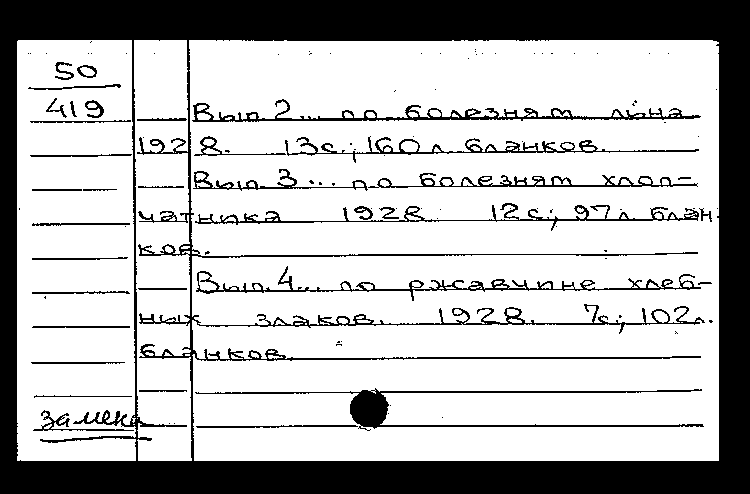 50
419
Вып. 2... по болезням льна
1928. 13с.; 160 л. бланков.
Вып. 3... по болезням хлоп-
чатника 1928. 12с.; 97 л. блан-
ков.
Вып. 4... по ржавчине хлеб-
ных злаков. 1928. 7с.; 102 л.
бланков.
замена